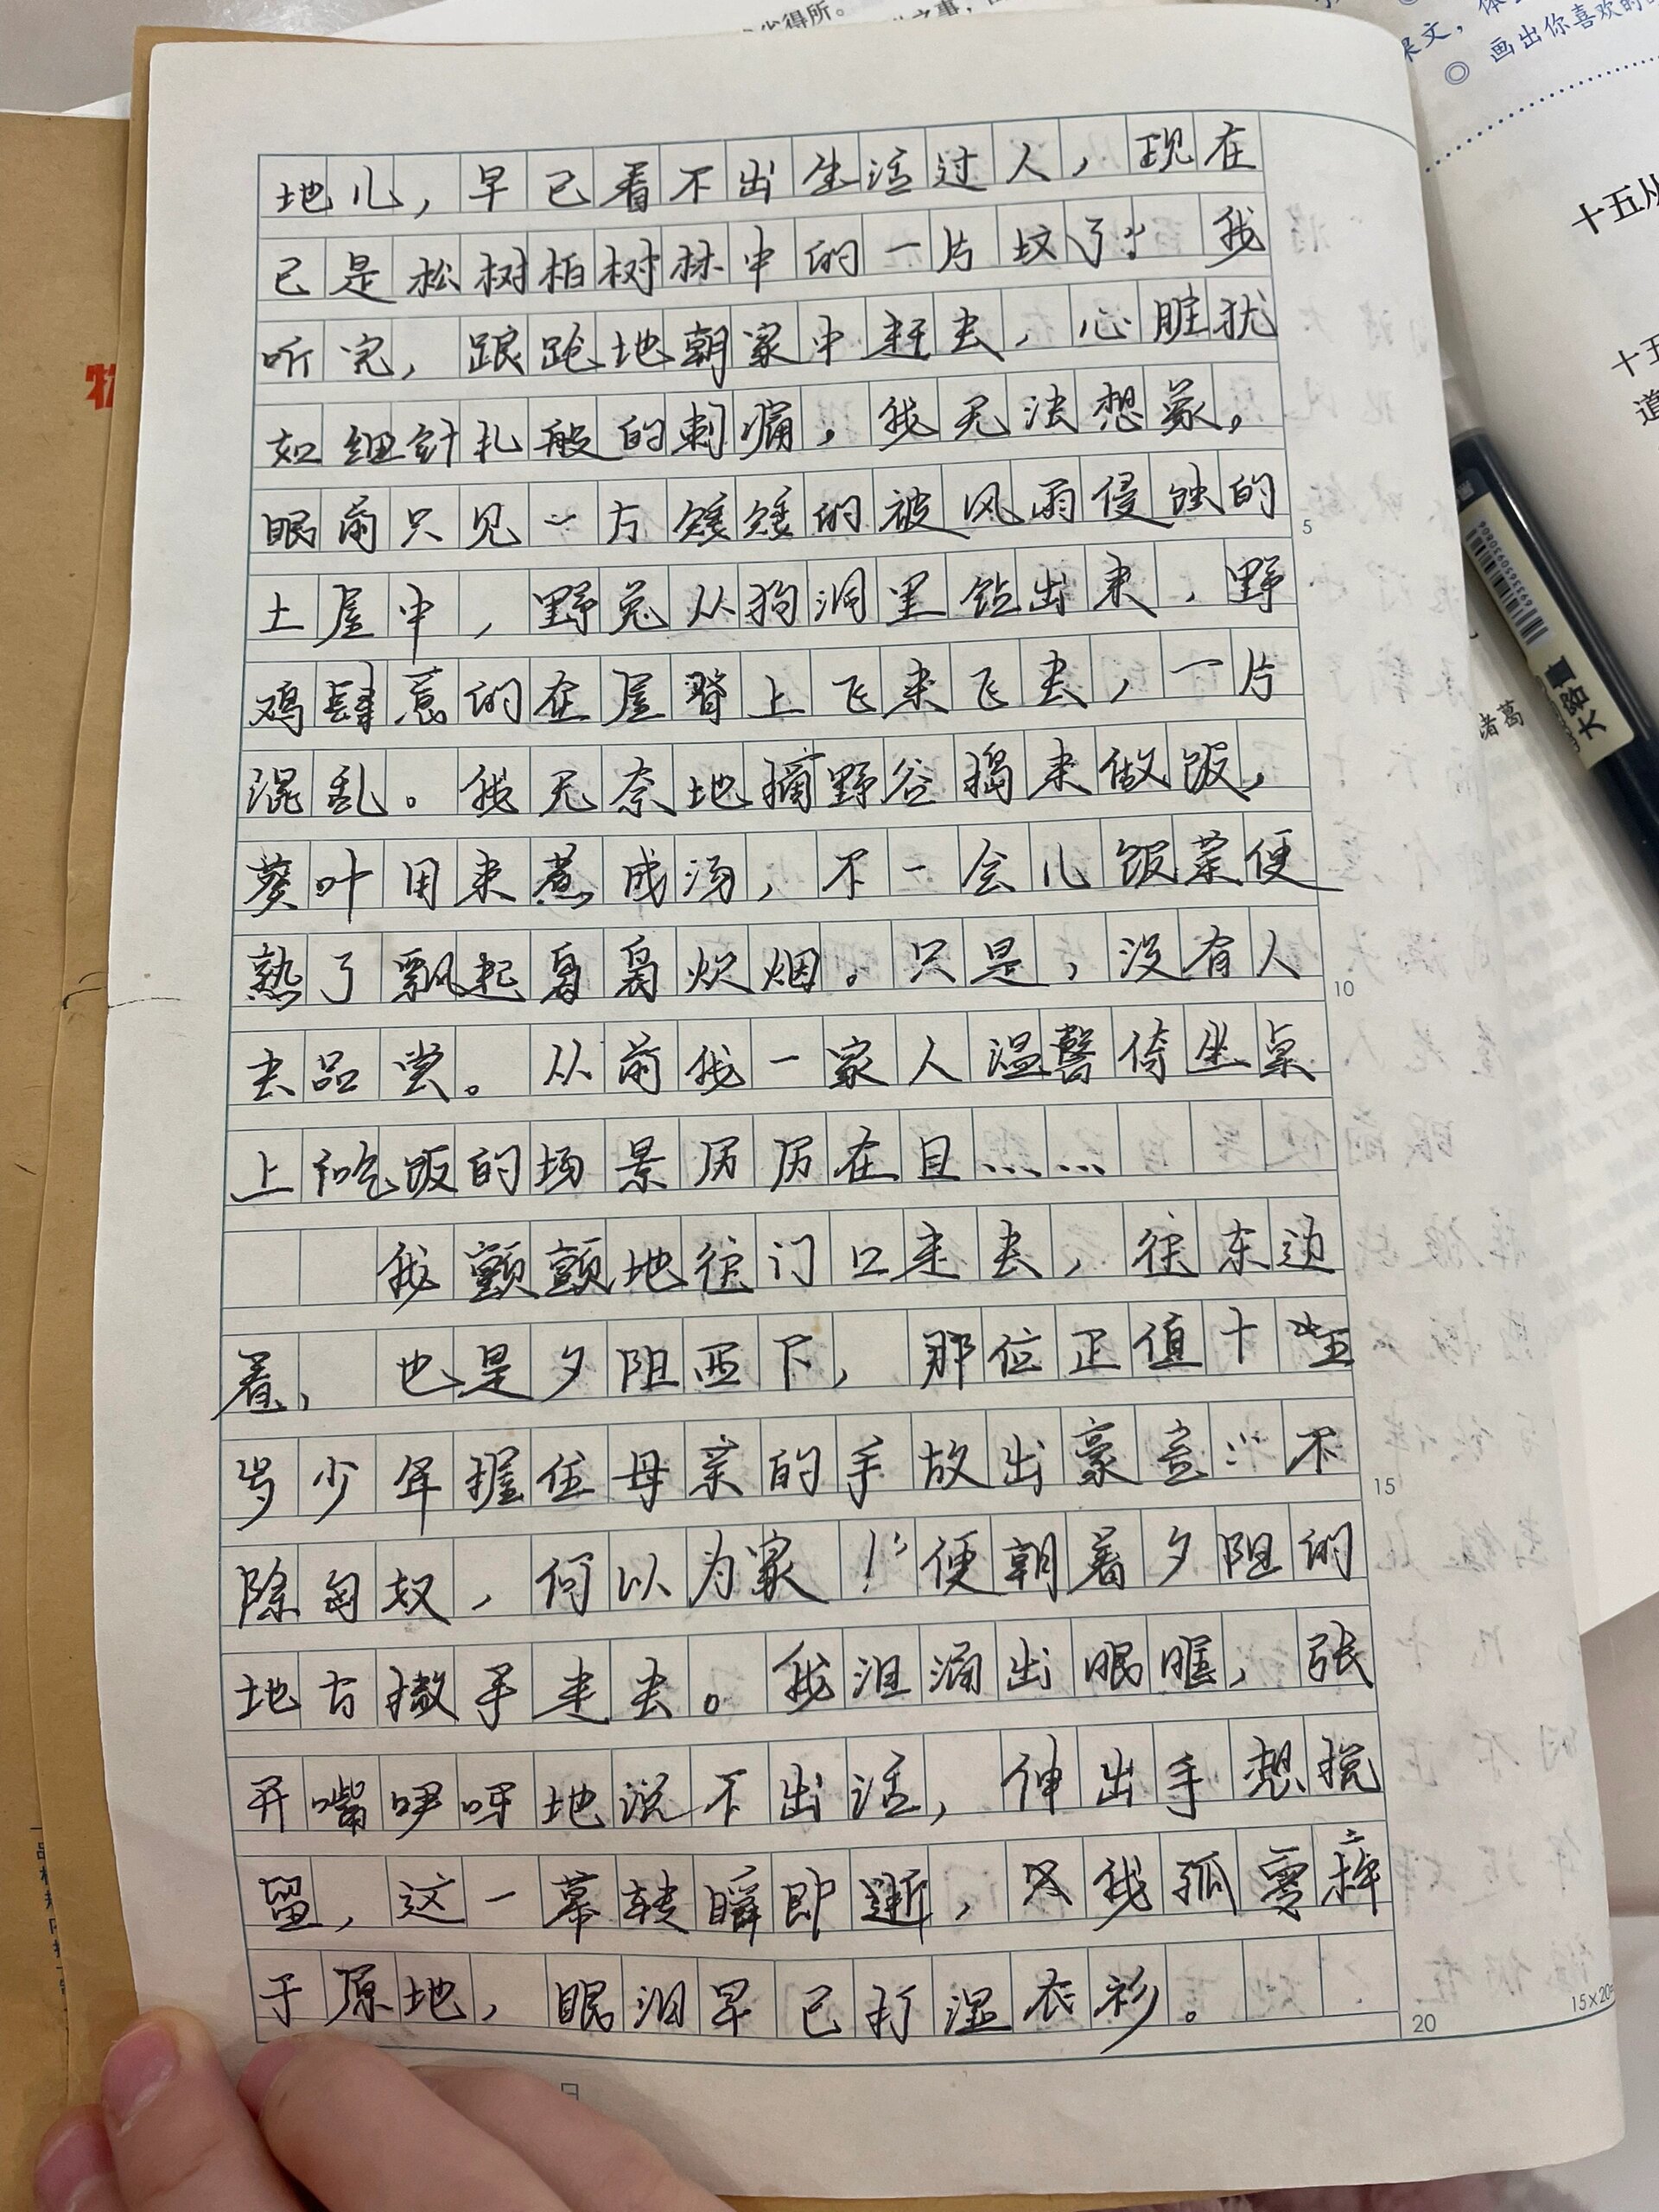 地儿，早已看不出生活过人，现在
已是松树柏树林中的一片坟了。”我
听完，踉跄地朝家中赶去，心脏犹
如细针扎般的刺痛，我无法想象，
眼前只见一方矮矮的被风雨侵蚀的
土屋中，野兔从狗洞里钻出来，野
鸡肆意的在屋脊上飞来飞去，一片
混乱。我无奈地摘野谷捣来做饭，
葵叶用来煮成汤，不一会儿饭菜便
熟了飘起袅袅炊烟。只是，没有人
去品尝。从前我一家人温馨倚坐桌
上吃饭的场景历历在目……
我颤颤地往门口走去，往东边
看，也是夕阳西下，那位正值十五
岁少年握住母亲的手放出豪言：“不
除匈奴，何以为家！”便朝着夕阳的
地方撒手走去。我泪涌出眼眶，张
开嘴咿呀地说不出话，伸出手想挽
留，这一幕转瞬即逝，只我孤零掉
于原地，眼泪早已打湿衣衫。
5
10
15
20
15×20=
画出你喜欢的
十五从
十五
道
诸葛
大容量
6936593059